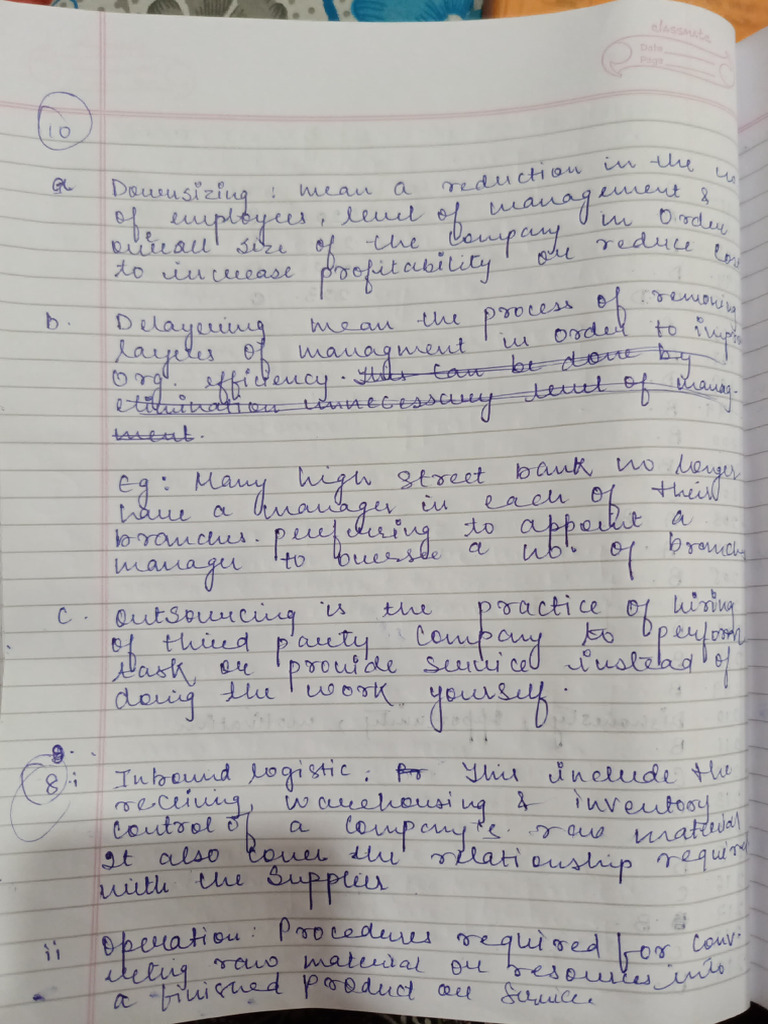 classmate
Date
Page
10
a Downsizing : mean a reduction in the
of employees, level of management &
overall size of the company in order
to increase profitability or reduce
b. Delayering mean the process of removing
layers of managment in order to
Org. efficiency. This can be done by
elimination unnecessary level of manag-
ment.
Eg : Many high street bank no longer
have a manager in each of their
branches. preferring to appoint a
manager to oversee a nb. of branch
c. Outsourcing is the practice of hiring
of third party company to perform
task or provide service instead of
doing the work yourself.
9.
8 i Inbound logistic : This include the
receiving, warehousing & inventory
control of a company's raw material
It also cover the relationship require
with the Supplier
ii Operation : Procedures required for conv-
erting raw material or resources into
a finished product or service.